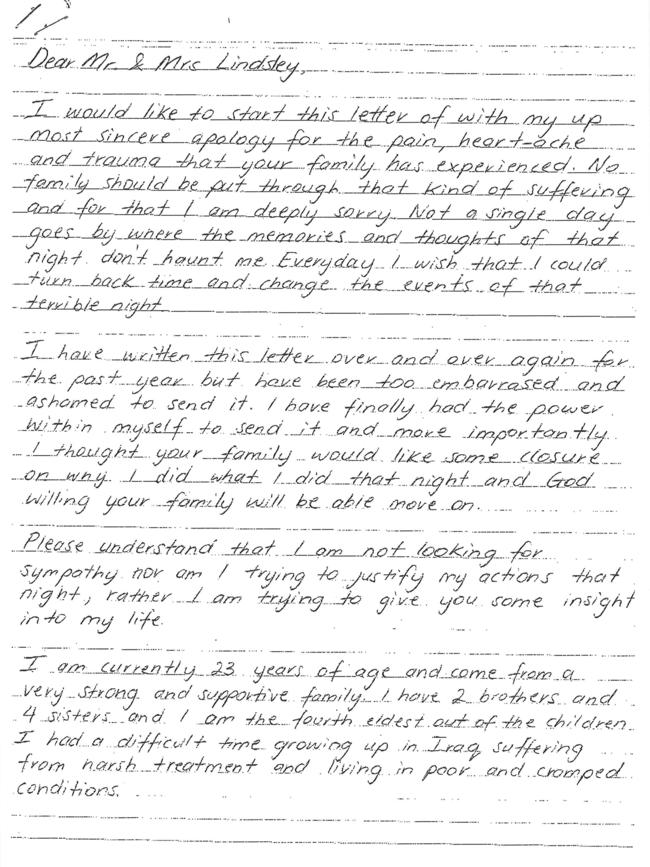 Dear Mr. & Mrs Lindsley,
I would like to start this letter of with my up
most sincere apology for the pain, heart-ache
and trauma that your family has experienced. No
family should be put through that kind of suffering
and for that I am deeply sorry. Not a single day
goes by where the memories and thoughts of that
night don't haunt me. Everyday I wish that I could
turn back time and change the events of that
terrible night
I have written this letter over and over again for
the past year but have been too embarrased and
ashamed to send it. I have finally had the power
within myself to send it and more importantly
I thought your family would like some closure
on why I did what I did that night and God
willing your family will be able move on.
Please understand that I am not looking for
sympathy nor am I trying to justify my actions that
night, rather I am trying to give you some insight
into my life.
I am currently 23 years of age and come from a
very strong and supportive family. I have 2 brothers and
4 sisters and I am the fourth eldest out of the children
I had a difficult time growing up in Iraq suffering
from harsh treatment and living in poor and cramped
conditions.